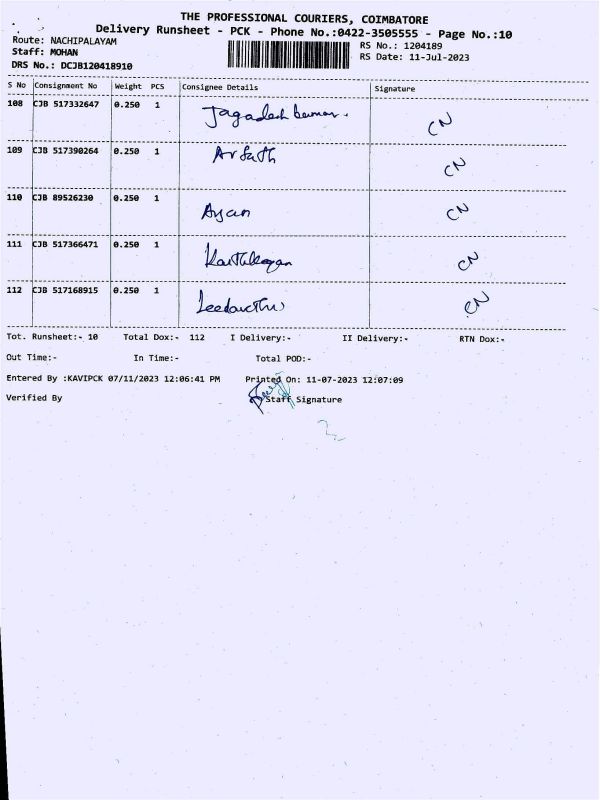 THE PROFESSIONAL COURIERS, COIMBATORE
Delivery Runsheet - PCK - Phone No.:0422-3505555 - Page No.:10
Route: NACHIPALAYAM
RS No.: 1204189
Staff: MOHAN
RS Date: 11-Jul-2023
DRS No.: DCJB120418910
S No Consignment No Weight PCS Consignee Details Signature
108 CJB 517332647 0.250 1 Jagadesh kumar. CN
109 CJB 517390264 0.250 1 Arfath CN
110 CJB 89526230 0.250 1 Ayan CN
111 CJB 517366471 0.250 1 CN
112 CJB 517168915 0.250 1 CN
Tot. Runsheet:- 10 Total Dox:- 112 I Delivery:- II Delivery:- RTN Dox:-
Out Time:- In Time:- Total POD:-
Entered By :KAVIPCK 07/11/2023 12:06:41 PM Printed On: 11-07-2023 12:07:09
Verified By Staff Signature